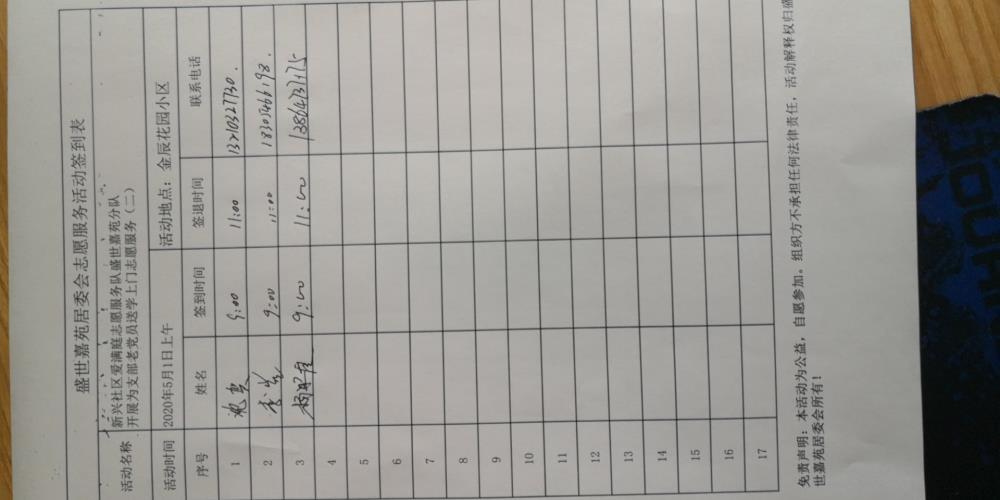 盛世嘉苑居委会志愿服务活动签到表
活动名称 新兴社区爱满庭志愿服务队盛世嘉苑分队
开展为支部老党员送学上门志愿服务（二）
活动时间 2020年5月1日上午 活动地点：金辰花园小区
序号 姓名 签到时间 签退时间 联系电话
1 9:00 11:00 13210327730.
2 9:00 11:00
3 9:00 11:00
4
5
6
7
8
9
10
11
12
13
14
15
16
17
免责声明：本活动为公益，自愿参加。组织方不承担任何法律责任，活动解释权归盛
世嘉苑居委会所有！